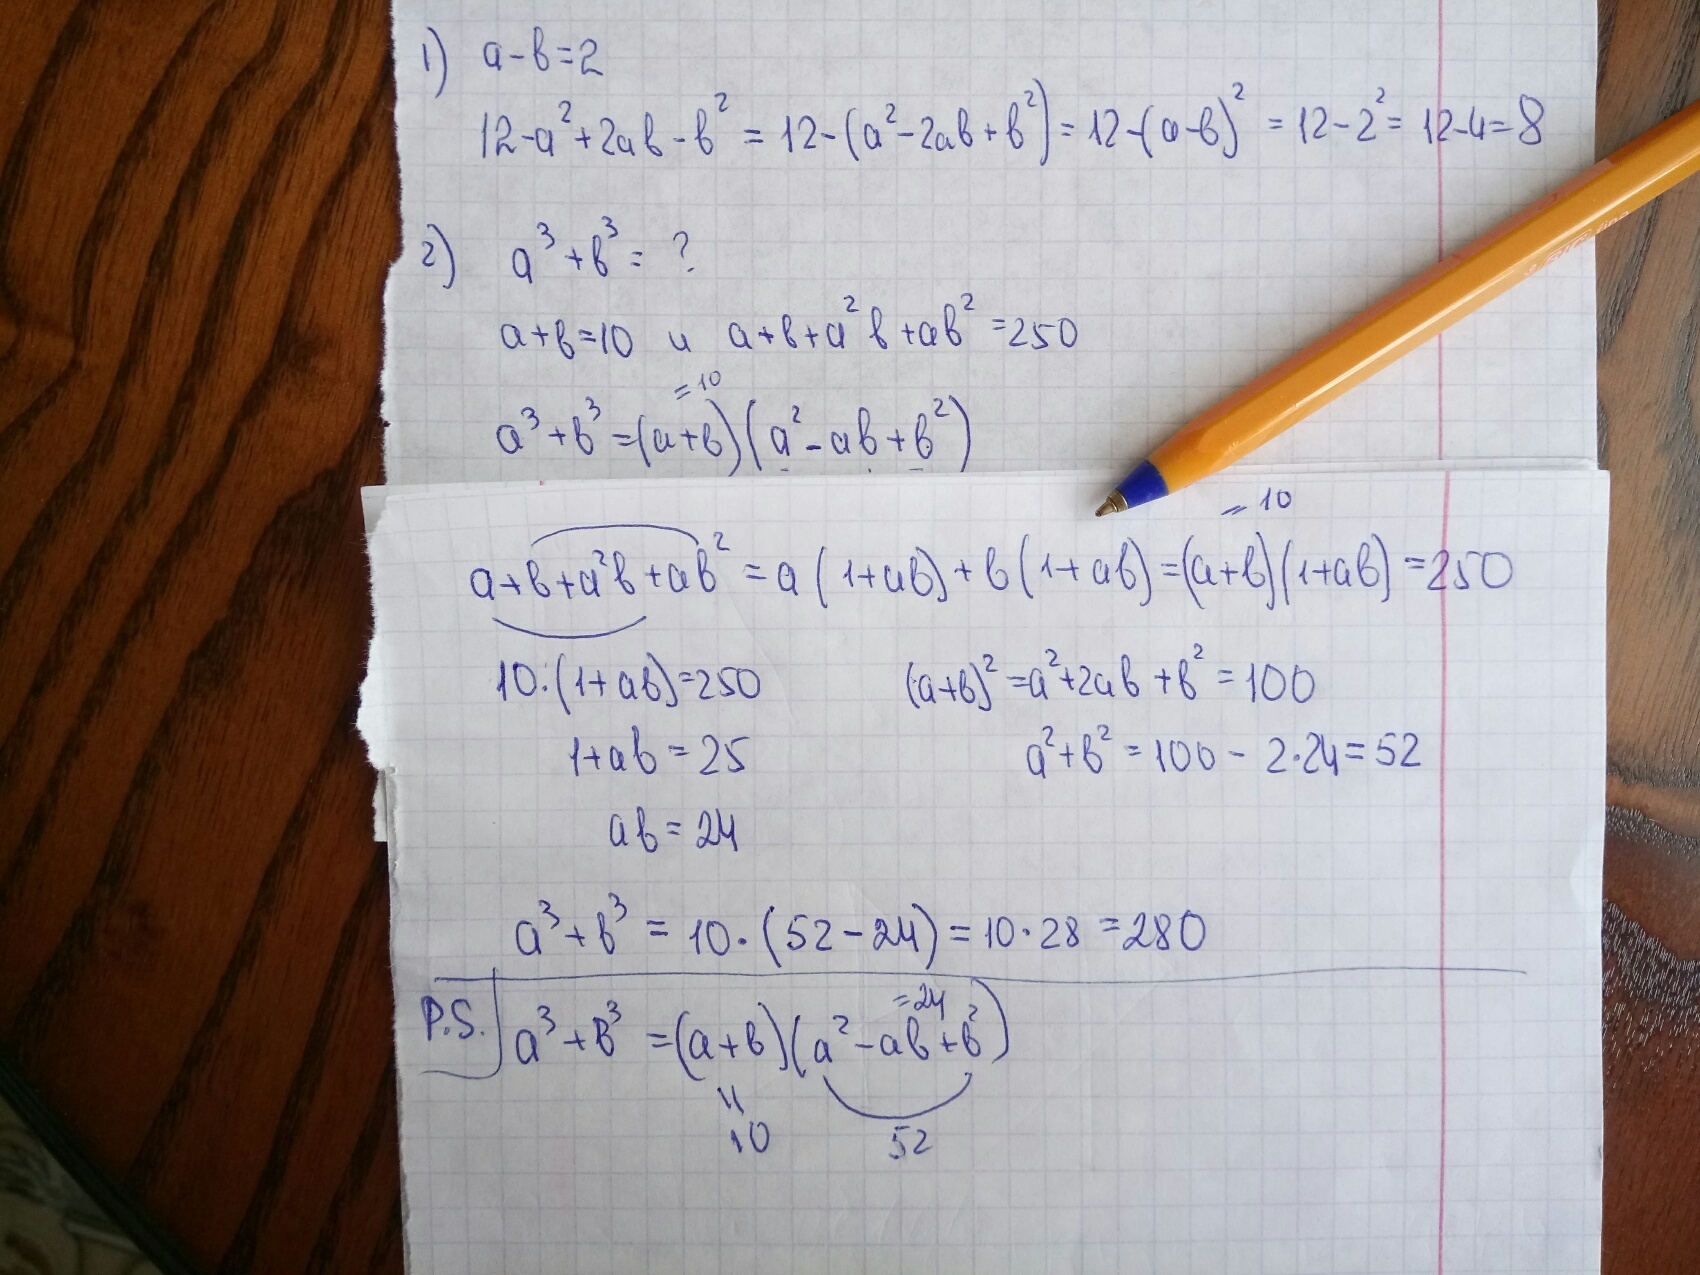 1) a-b=2
12-a²+2ab-b² = 12-(a²-2ab+b²) = 12-(a-b)² = 12-2² = 12-4=8
2) a³+b³ = ?
a+b=10 и a+b+a²b+ab² =250
=10
a³+b³ =(a+b)(a²-ab+b²)
=10
a+b+a²b+ab² = a(1+ab)+b(1+ab) =(a+b)(1+ab) =250
10·(1+ab)=250 (a+b)² =a²+2ab+b² =100
1+ab = 25 a²+b² = 100 - 2·24=52
ab = 24
a³+b³ = 10·(52-24) = 10·28 =280
=24
P.S. a³+b³ =(a+b)(a²-ab+b²)
=
10 52